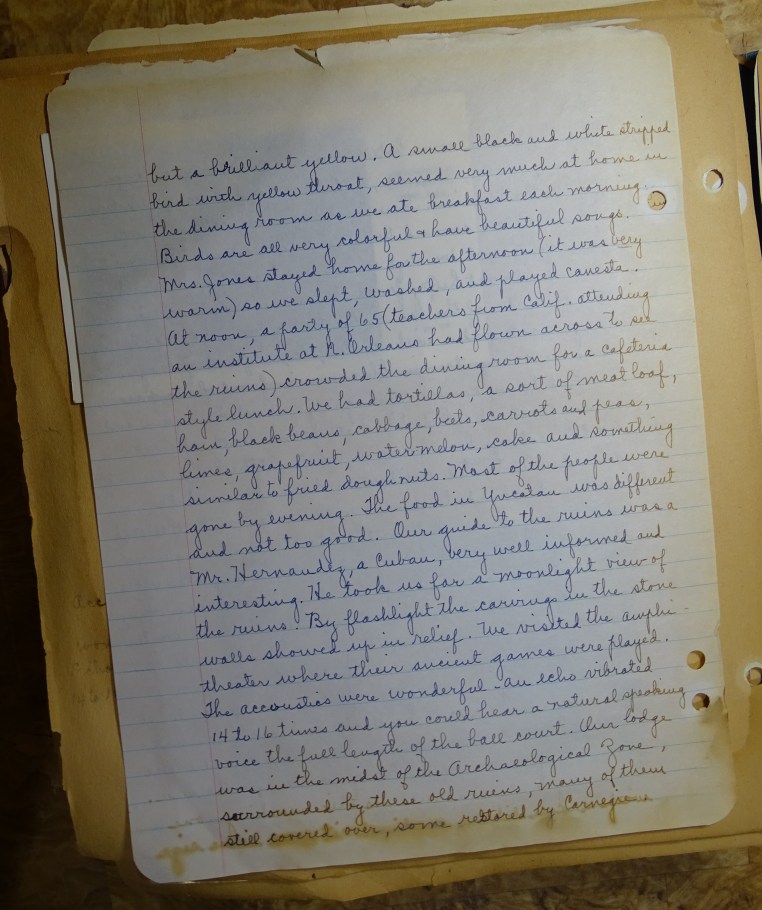 but a brilliant yellow. A small black and white stripped
bird with yellow throat, seemed very much at home in
the dining room as we ate breakfast each morning.
Birds are all very colorful & have beautiful songs.
Mrs. Jones stayed home for the afternoon (it was very
warm) so we slept, washed, and played canesta.
At noon, a party of 65 (teachers from Calif. attending
an institute at N. Orleans had flown across to see
the ruins) crowded the dining room for a cafeteria
style lunch. We had tortillas, a sort of meat loaf,
ham, black beans, cabbage, beets, carrots and peas,
limes, grapefruit, watermelon, cake and something
similar to fried doughnuts. Most of the people were
gone by evening. The food in Yucatan was different
and not too good. Our guide to the ruins was a
Mr. Hernandez, a Cuban, very well informed and
interesting. He took us for a moonlight view of
the ruins. By flashlight the carvings in the stone
walls showed up in relief. We visited the amphi-
theater where their ancient games were played.
The accoustics were wonderful - an echo vibrated
14 to 16 times and you could hear a natural speaking
voice the full length of the ball court. Our lodge
was in the midst of the Archaeological Zone,
surrounded by these old ruins, many of them
still covered over, some restored by Carnegie